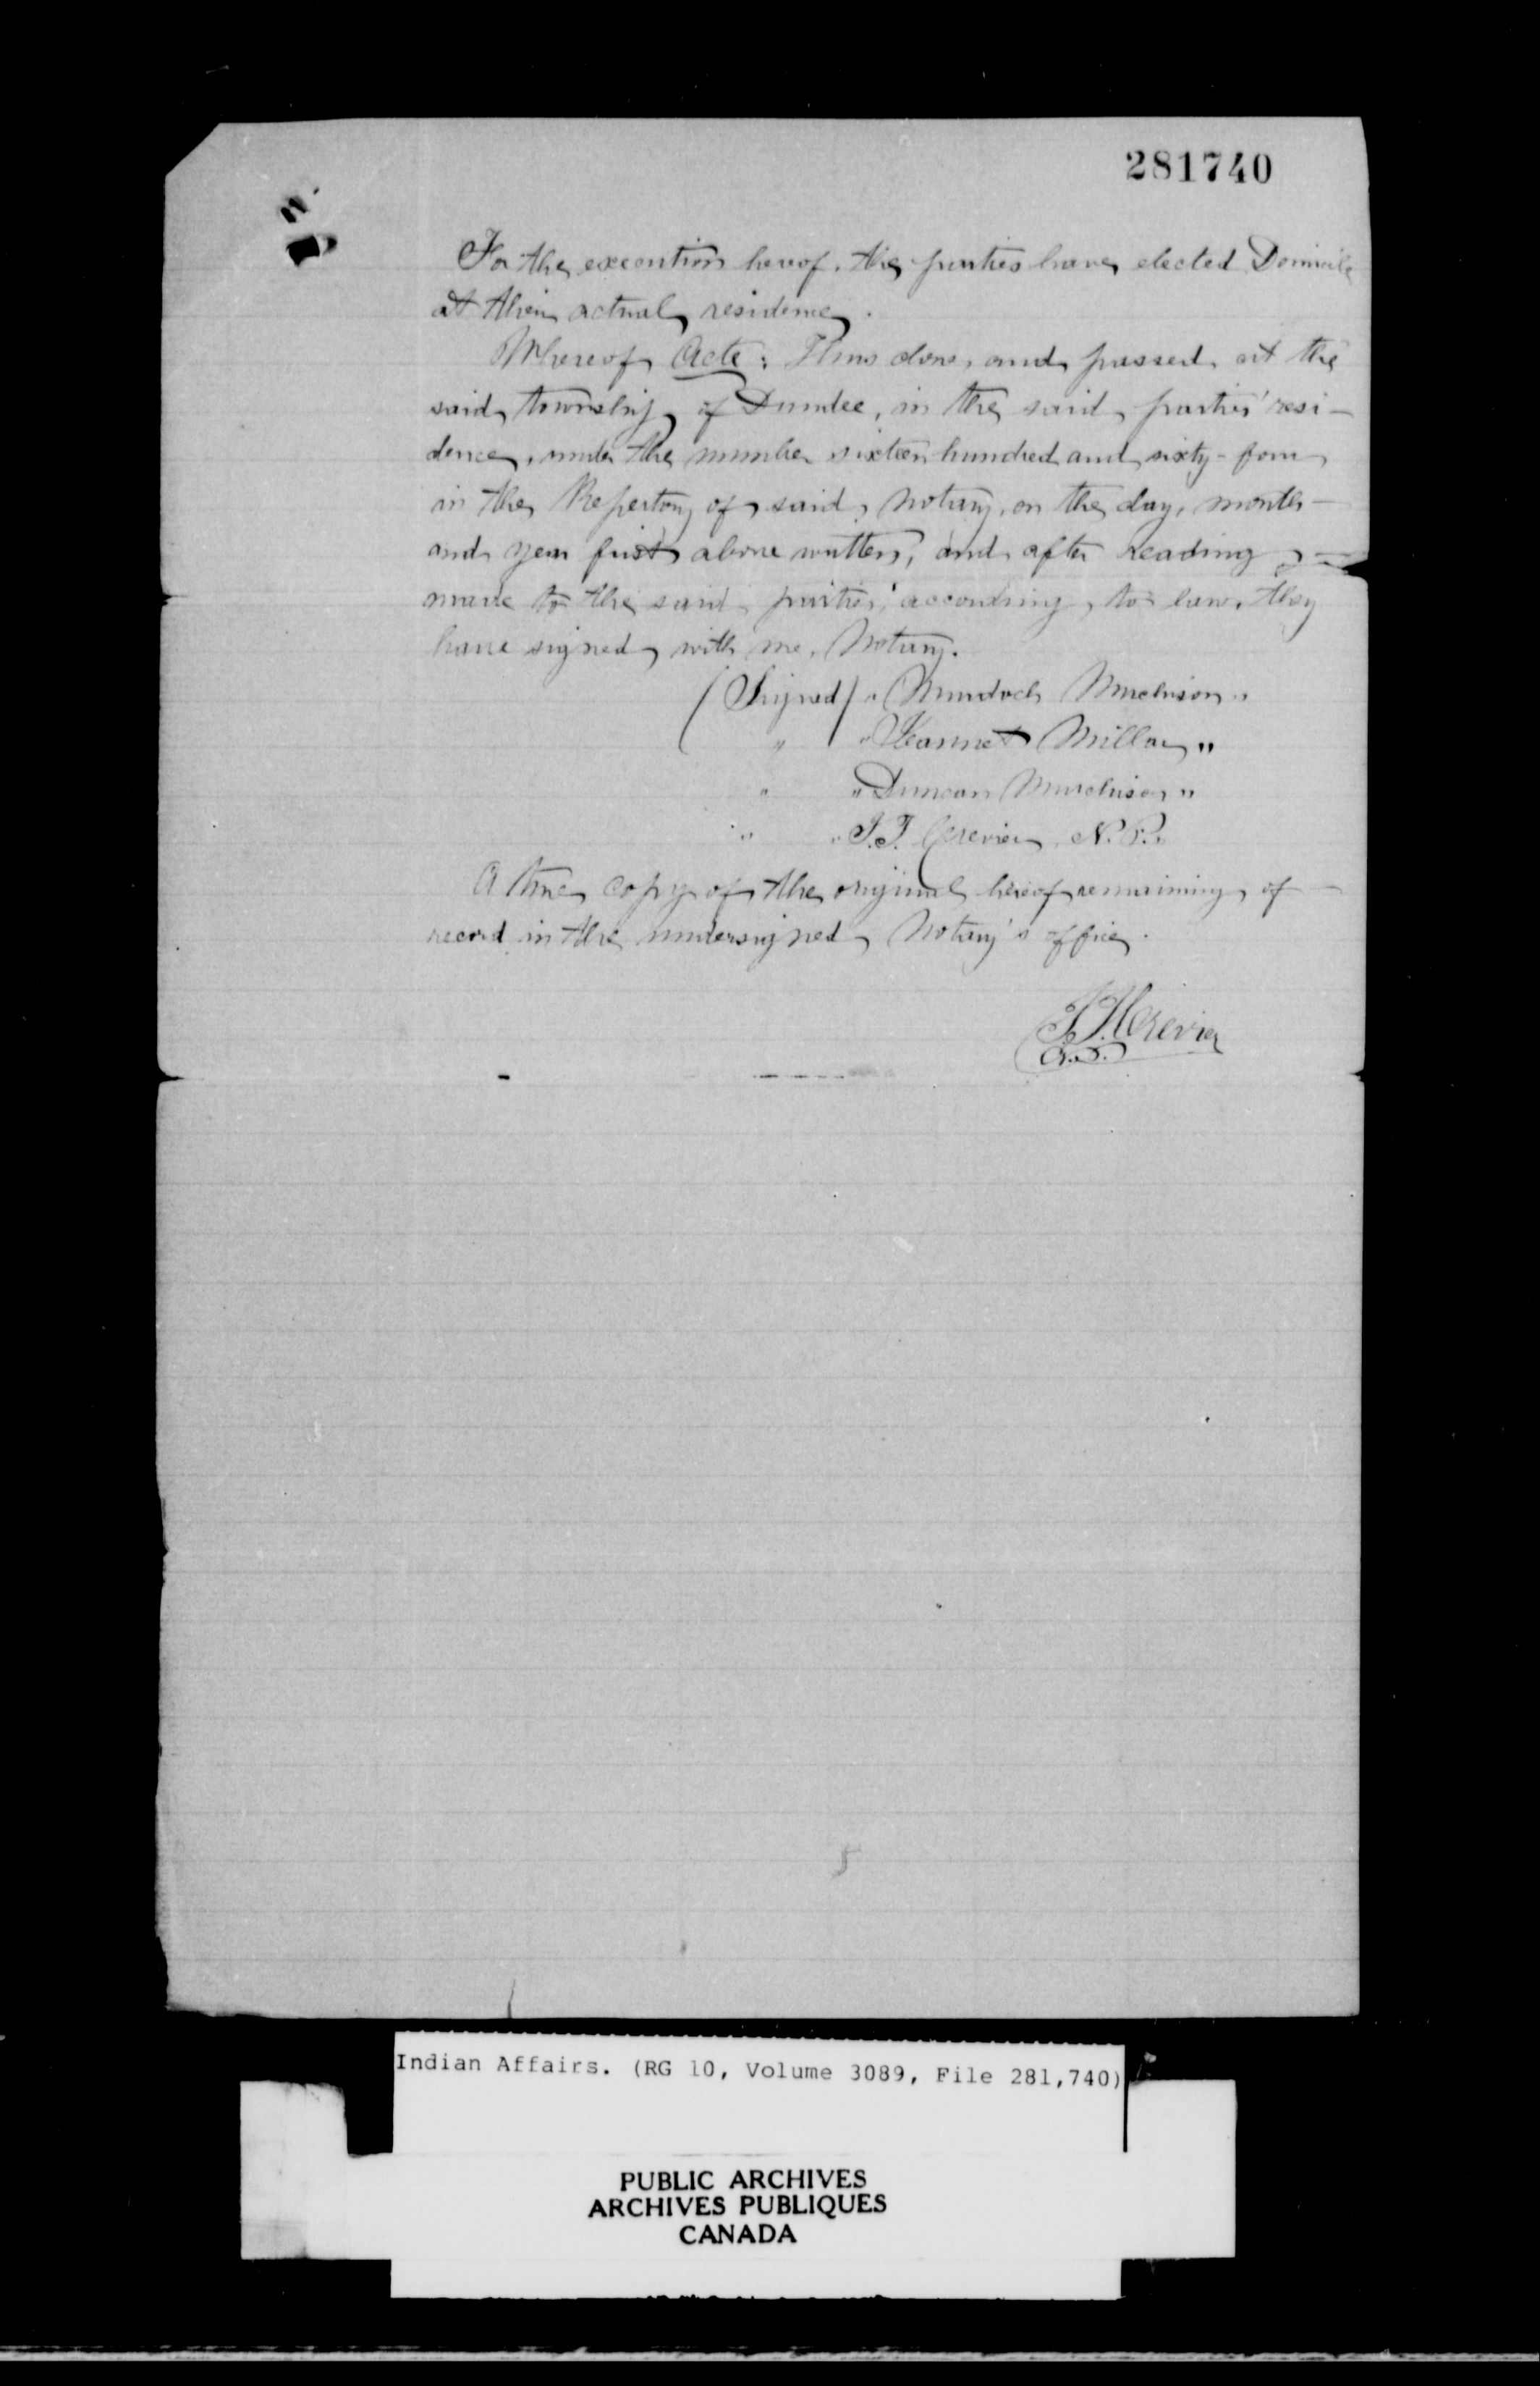 281740
For the execution hereof, the parties have elected Domicile
at their actual residence.
Whereof Acte: Thus done, and passed, at the
said township of Dundee, in the said parties' resi-
dence, under the number sixteen hundred and sixty-four
in the Repertory of said, Notary, on the day, month
and year first above written, and after reading
made to the said parties, according to law, they
have signed with me, Notary.
(Signed) "Murdoch Murchison"
" "Jeannet Millar"
" "Duncan Murchison"
" "J. F. Crevier, N.P."
A true Copy of the original hereof remaining of
record in the undersigned Notary's office.
Crevier
N.P.
Indian Affairs. (RG 10, Volume 3089, File 281,740)
PUBLIC ARCHIVES
ARCHIVES PUBLIQUES
CANADA